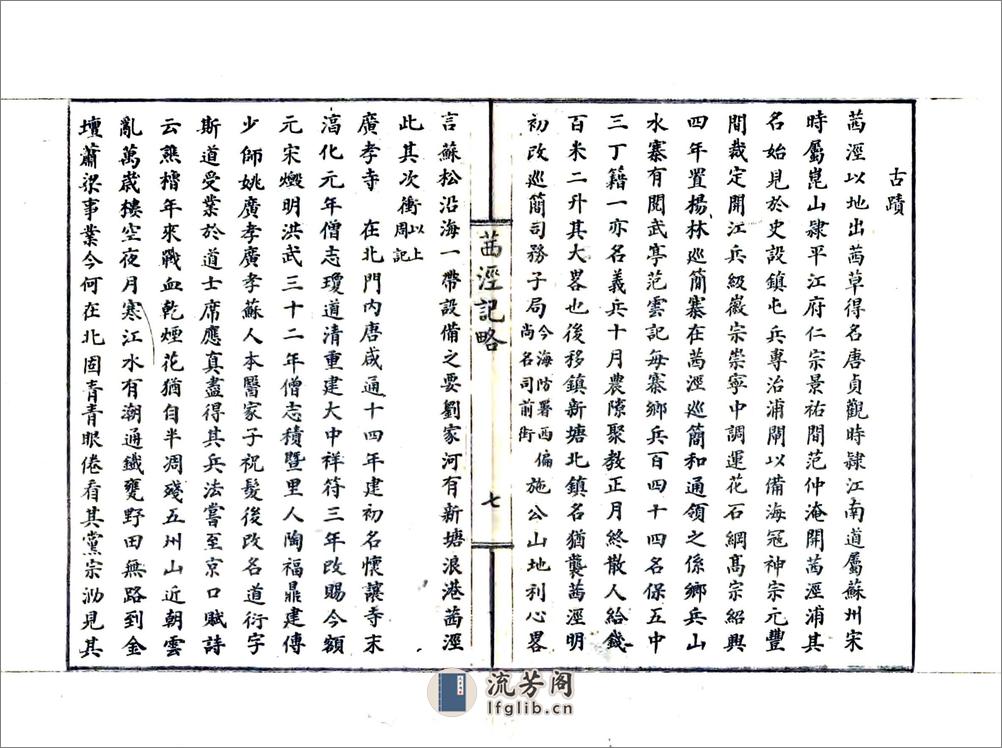 古蹟
茜涇以地出茜草得名唐貞觀時隸江南道屬蘇州宋
時屬崑山隸平江府仁宗景祐間范仲淹開茜涇浦其
名始見於史設鎮屯兵專治浦閘以備海冦神宗元豐
間裁定開江兵級徽宗崇寧中調運花石綱高宗紹興
四年置楊林巡簡寨在茜涇巡簡和通領之係鄉兵山
水寨有閱武亭范雲記每寨鄉兵百四十四名保五中
三丁籍一亦名義兵十月農隙聚教正月終散人給錢
百米二升其大畧也後移鎮新塘北鎮名猶襲茜涇明
初改巡簡司務子局今海防署西偏尚名司前街施公山地利心畧
茜涇記略
七
言蘇松沿海一帶設備之要劉家河有新塘浪港茜涇
此其次衝以上周記
廣孝寺 在北門内唐咸通十四年建初名懷讓寺末
滈化元年僧志瓊道清重建大中祥符三年改賜今額
元宋燬明洪武三十二年僧志積暨里人陶福鼎建傳
少師姚廣孝廣孝蘇人本醫家子祝髮後改名道衍字
斯道受業於道士席應真盡得其兵法嘗至京口賦詩
云熊櫓年來戰血乾煙花猶自半凋殘五州山近朝雲
亂萬歲樓空夜月寒江水有潮通鐵甕野田無路到金
壇蕭梁事業今何在北固青青眼倦看其黨宗泐見其
流芳阁
lfglib.cn